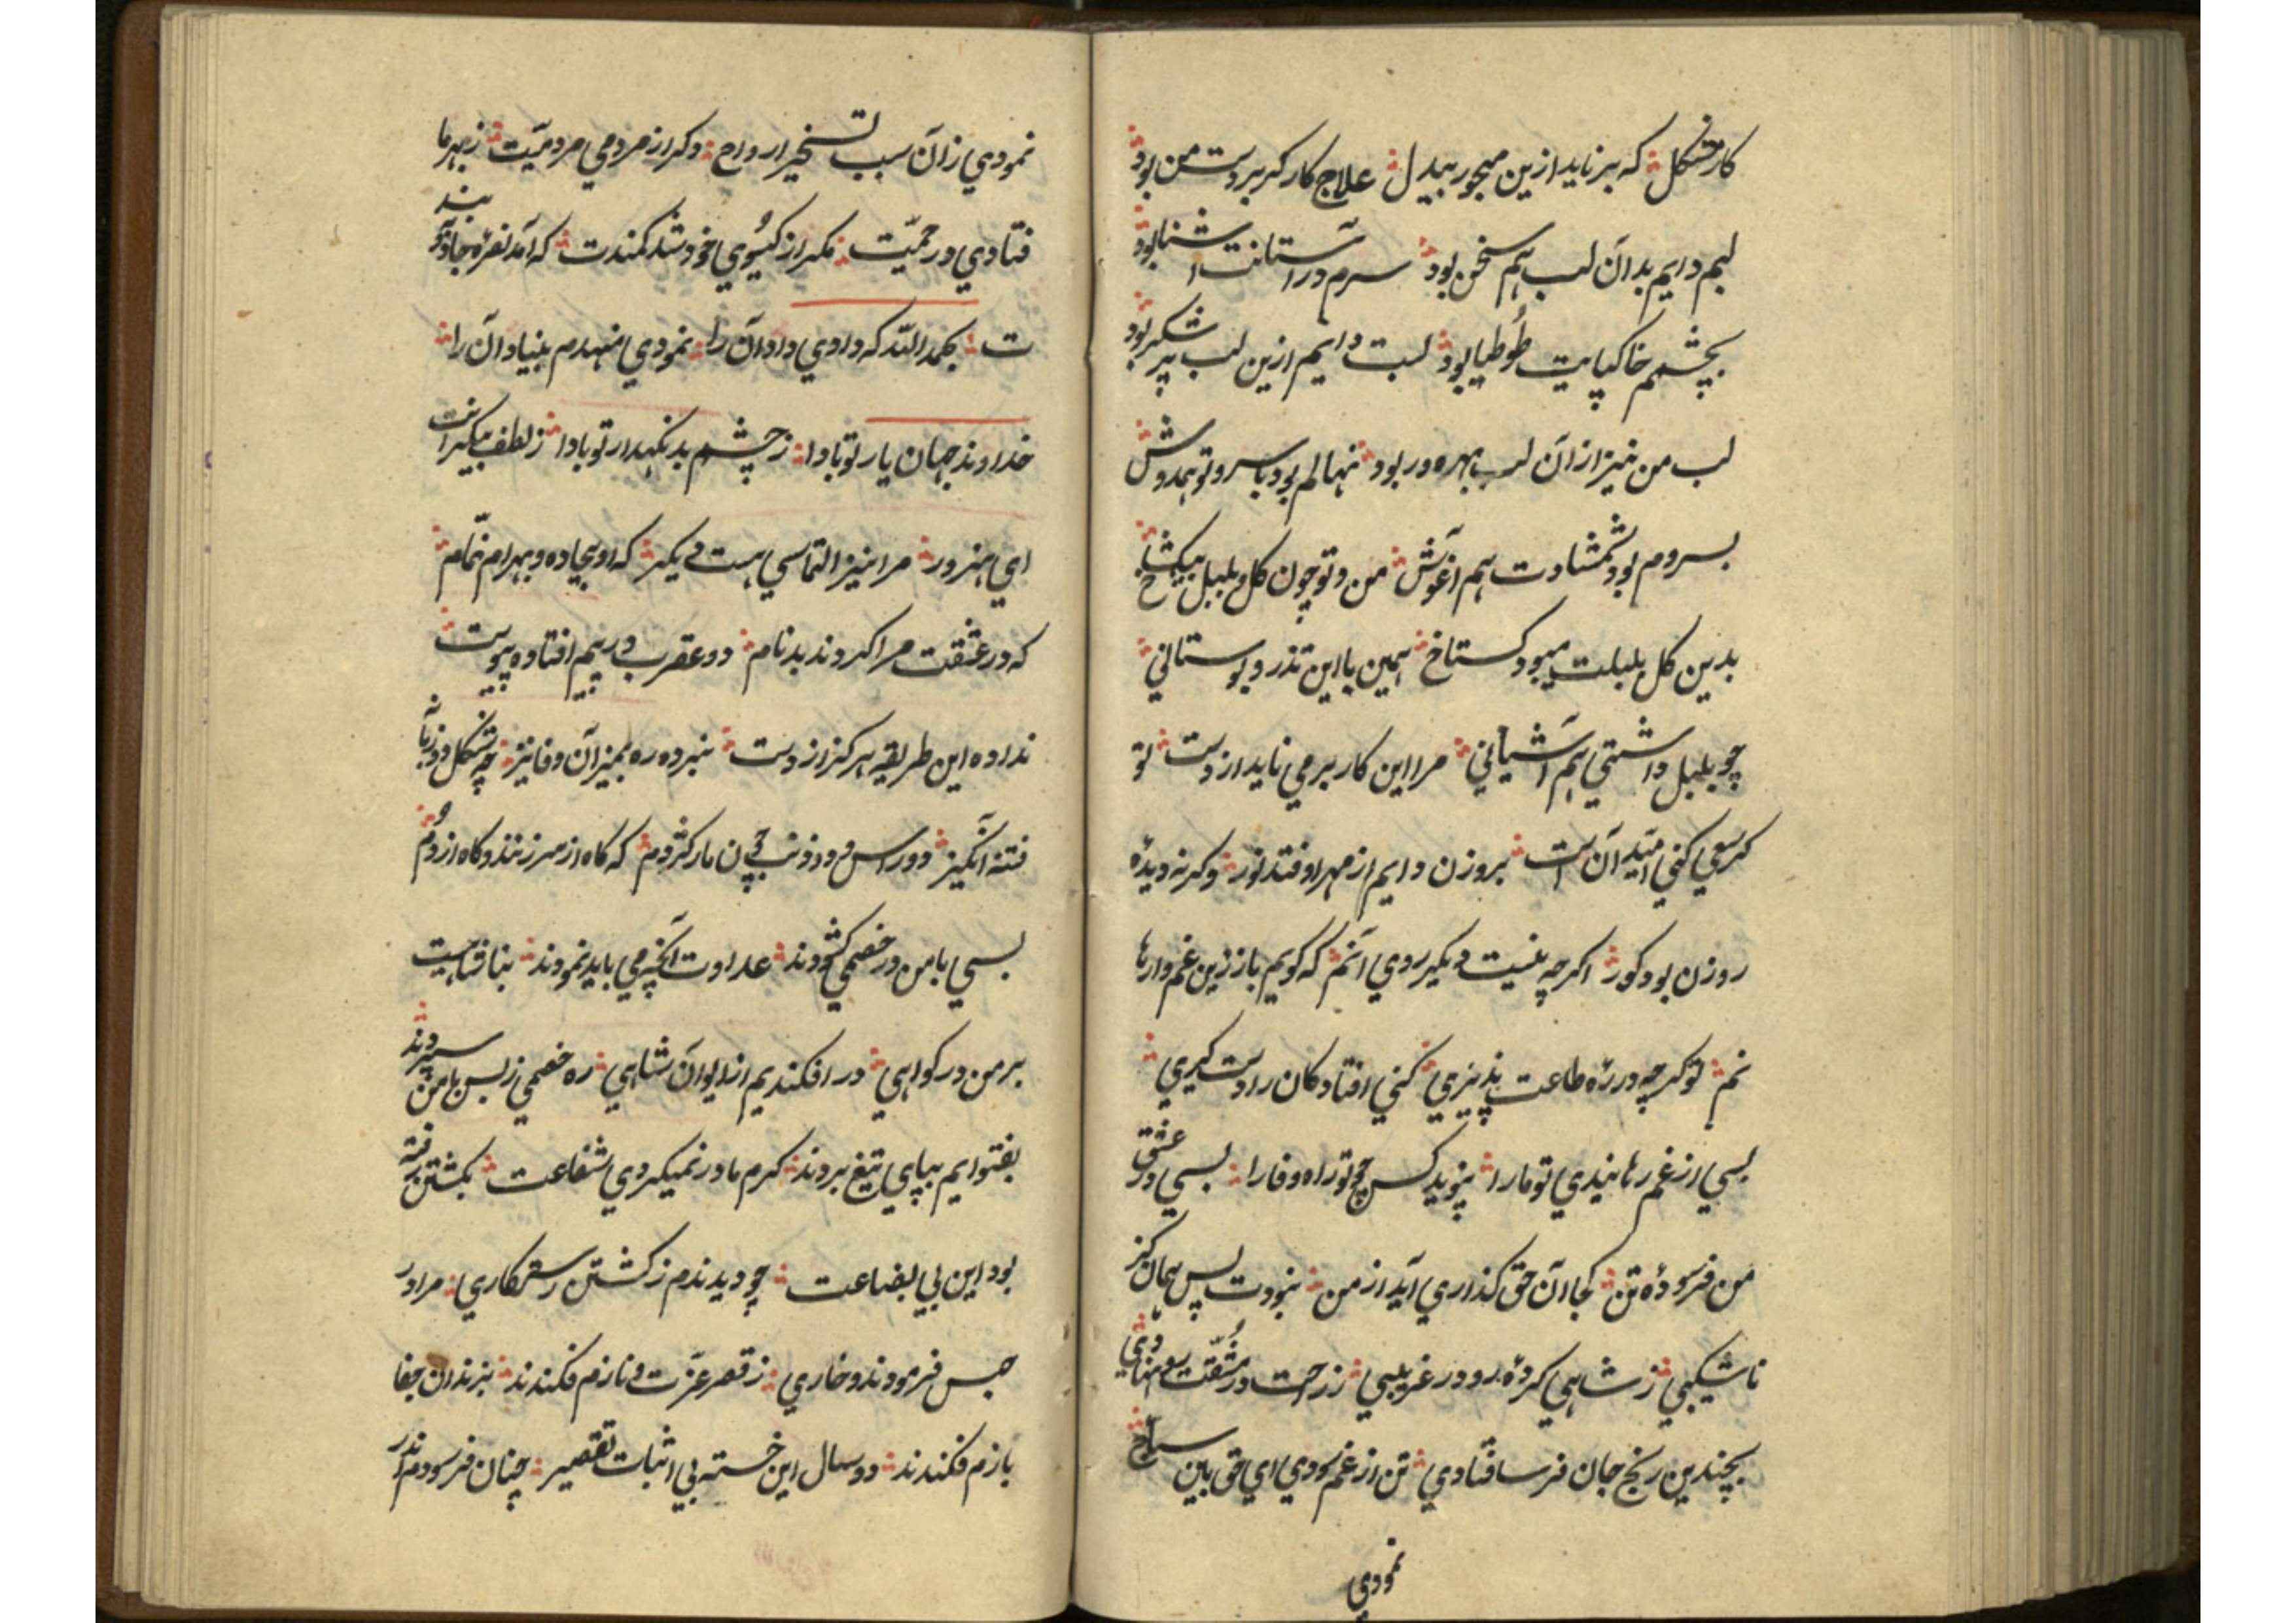 کار مشکل که بر ناید ازین مهجور بیدل علاج کار کر بر دست من بود
لبم دایم بدان لب هم سخن بود سرم در آستانت آشنا بود
بچشمم خاکپایت طوطیا بود لبت دایم ازین لب پر شکر بود
لب من نیز از آن لب بهره ور بود نهالم بود با سرو تو همدوش
بسروم بود شمشادت هم آغوش من و تو چون کل و بلبل بیکشاخ
بدین کل بلبلت میبود کستاخ همین با این تذرو بوستانی
چو بلبل داشتی هم آشیانی مرا این کار بر می ناید از دست تو
کر سعی کنی امید آن است بروزن دایم از مهر اوفتد نور وکرنه دیدۀ
روزن بود کور اکرچه نیست دیکر روی آنم که کویم باز زین غم وارها
نم تو کرچه در رۀ طاعت پذیری کنی افتادکان را دست کیری
بسی از غم رهانیدی تو مارا نپوید کس چو تو راه وفا را بسی در عشق
من فرسودۀ تن کجا آن حق کذاری آید از من نبودت بس همان کز
ناشکیبی ز شاهی کردۀ رو در غریبی ز راحت در مشقت رو نهادی
بچندین رنج جان فرسا فتادی تن از غم سودی ای حق بین
نمودی
نمودی زان سبب تسخیر ارواح دکر از مردمی مردمیت ز بهر ما
فتادی در حمیت مکر از کیسوی خود شد کمندت که آمد نعرۀ جادو بند
ت بحمد الله که دادی داد آن را نمودی منهدم بنیاد آن را
خداوند جهان یار تو بادا ز چشم بد نکهدار تو بادا ز لطف بیکرانت
ای هنرور مرا نیز التماسی هست دیکر که او بیجاده و بهرام نمام
که در عشقت مرا کردند بدنام دو عقرب در پیم افتاده پیوست
نداده این طریقه هرکز از دست نبرده ره بمیزان وفا نیز چه مشکل دوزبان
فتنه انکیز دو راس و دو ذنب چون مار کژدم که کاه از سر زنند و کاه از دم
بسی با من در خصمی کشودند عداوت آنچه می باید نمودند
بر من در کواهی در افکندیم از ایوان شاهی ره خصمی ز بس با من سپردند
بفتوایم بپای تیغ بردند کرم مادر نمیکردی شفاعت بکشتن رفته
بود این بی بضاعت چو دیدندم ز کشتن رستکاری مرا در
حبس فرمودند و خاری ز قصر عزت و نازم فکندند بزندان جفا
بازم فکندند دو سال این خسته بی اثبات تقصیر چنان فرسودم اندر